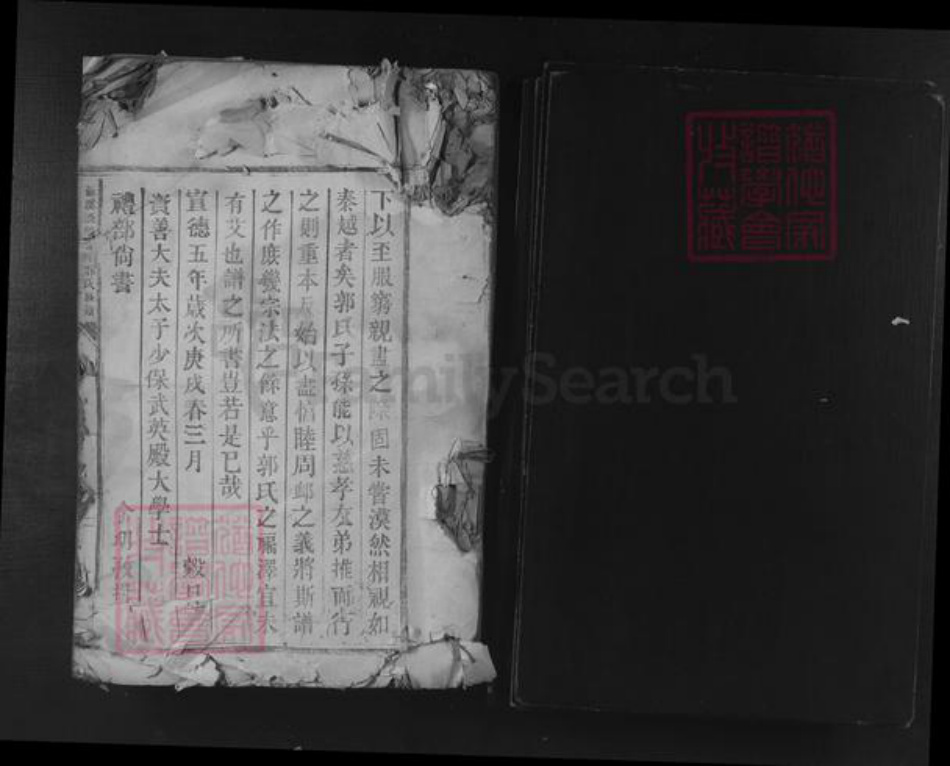 下以至服窮親盡之際固未嘗漠然相視如
秦越者矣郭氏子孫能以慈孝友弟推而行
之則重本反始以盡信睦周卹之義將斯譜
之作庶幾宗法之餘意乎郭氏之福澤宜未
有艾也譜之所書豈若是已哉
宣德五年歲次庚戌春三月 穀旦
資善大夫太子少保武英殿大學士
禮部尚書
FamilySearch